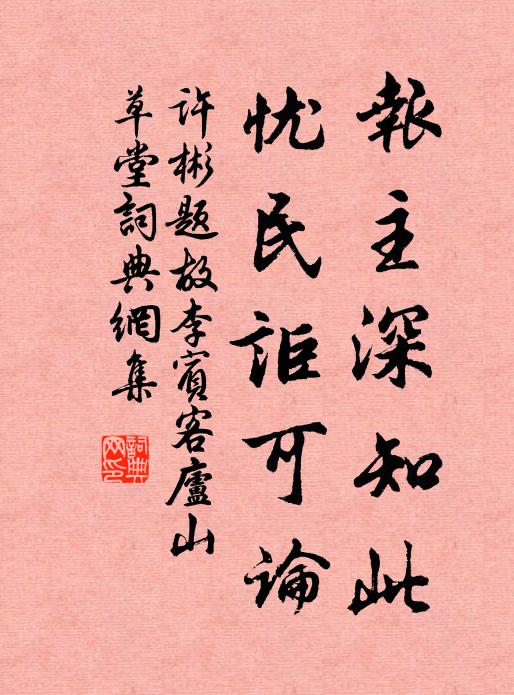 報主深知此
忧民詎可論
许彬题故李賓客廬山
草堂詞典網集
詞典网印